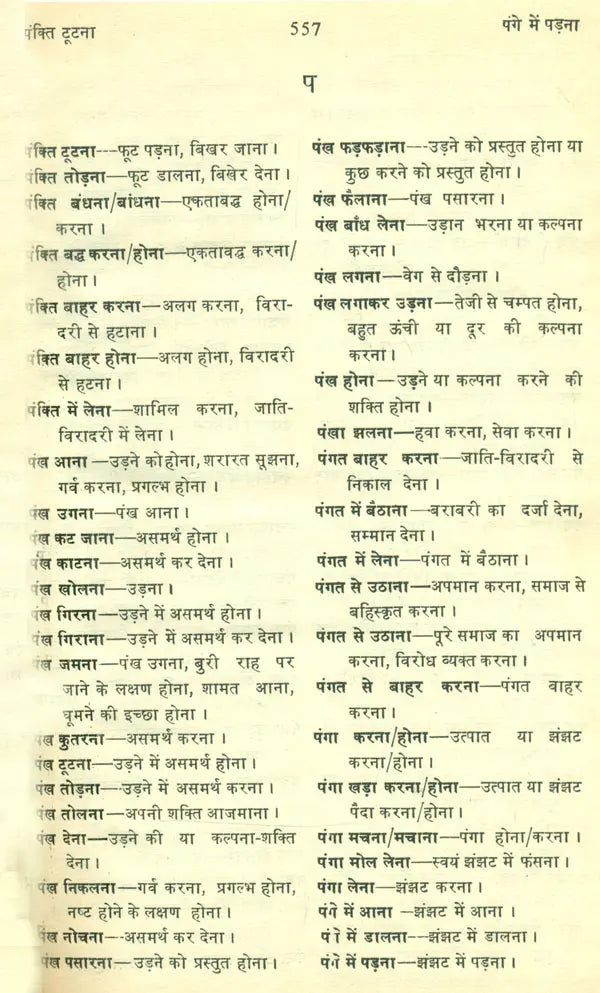 पंक्ति टूटना
557
पंगे में पड़ना
प
पंक्ति टूटना---फूट पड़ना, बिखर जाना ।
पंक्ति तोड़ना—फूट डालना, बिखेर देना ।
पंक्ति बंधना/बांधना—एकताबद्ध होना/
करना ।
पंक्ति बद्ध करना/होना—एकतावद्ध करना/
होना ।
पंक्ति बाहर करना—अलग करना, विरा-
दरी से हटाना ।
पंक्ति बाहर होना—अलग होना, विरादरी
से हटना ।
पंक्ति में लेना—शामिल करना, जाति-
विरादरी में लेना ।
पंख आना—उड़ने को होना, शरारत सूझना,
गर्व करना, प्रगल्भ होना ।
पंख उगना—पंख आना ।
पंख कट जाना—असमर्थ होना ।
पंख काटना—असमर्थ कर देना ।
पंख खोलना—उड़ना ।
पंख गिरना—उड़ने में असमर्थ होना ।
पंख गिराना—उड़ने में असमर्थ कर देना ।
पंख जमना—पंख उगना, बुरी राह पर
जाने के लक्षण होना, शामत आना,
घूमने की इच्छा होना ।
पंख कुतरना—असमर्थ करना ।
पंख टूटना—उड़ने में असमर्थ होना ।
पंख तोड़ना—उड़ने में असमर्थ करना ।
पंख तोलना—अपनी शक्ति आजमाना ।
पंख देना—उड़ने की या कल्पना-शक्ति
देना ।
पंख निकलना—गर्व करना, प्रगल्भ होना,
नष्ट होने के लक्षण होना ।
पंख नोचना—असमर्थ कर देना ।
पंख पसारना—उड़ने को प्रस्तुत होना ।
पंख फड़फड़ाना---उड़ने को प्रस्तुत होना या
कुछ करने को प्रस्तुत होना ।
पंख फैलाना—पंख पसारना ।
पंख बाँध लेना—उड़ान भरना या कल्पना
करना ।
पंख लगना—वेग से दौड़ना ।
पंख लगाकर उड़ना—तेजी से चम्पत होना,
बहुत ऊंची या दूर की कल्पना
करना ।
पंख होना—उड़ने या कल्पना करने की
शक्ति होना ।
पंखा झलना—हवा करना, सेवा करना ।
पंगत बाहर करना—जाति-विरादरी से
निकाल देना ।
पंगत में बैठाना—बराबरी का दर्जा देना,
सम्मान देना ।
पंगत में लेना—पंगत में बैठाना ।
पंगत से उठाना—अपमान करना, समाज से
बहिस्कृत करना ।
पंगत से उठाना—पूरे समाज का अपमान
करना, विरोध व्यक्त करना ।
पंगत से बाहर करना—पंगत बाहर
करना ।
पंगा करना/होना—उत्पात या झंझट
करना/होना ।
पंगा खड़ा करना/होना—उत्पात या झंझट
पैदा करना/होना ।
पंगा मचना/मचाना—पंगा होना/करना ।
पंगा मोल लेना—स्वयं झंझट में फंसना ।
पंगा लेना—झंझट करना ।
पंगे में आना—झंझट में आना ।
पंगे में डालना—झंझट में डालना ।
पंगे में पड़ना—झंझट में पड़ना ।